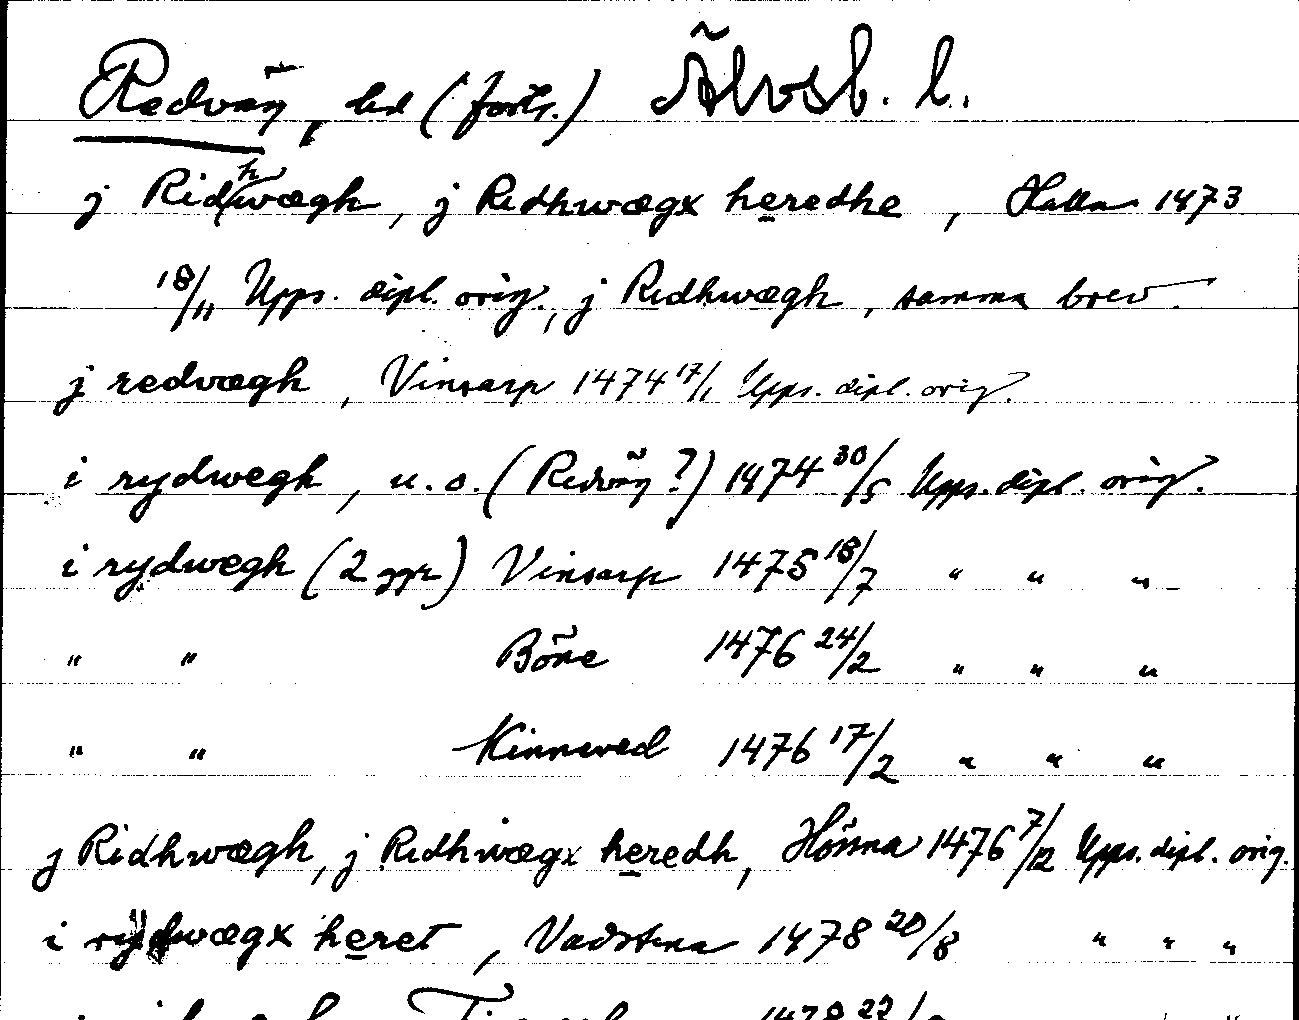 Redväg, hd (forts.) Älvsb. l.
j Ridhwægh, j Redhwægx heredhe, Halla 1473
18/11 Upps. dipl. orig., j Redhwægh, samma brev.
j redvægh, Vinsarp 1474 17/1 Upps. dipl. orig.
i rydwegh, u. o. (Redväg?) 1474 30/5 Upps. dipl. orig.
i rydwegh (2 ggr) Vinsarp 1475 18/7 " " "
" " Böne 1476 24/2 " " "
" " Kinneved 1476 17/2 " " "
j Ridhwægh, j Redhwægx heredh, Hössna 1476 7/12 Upps. dipl. orig.
i rydwægx heret, Vadstena 1478 20/8 " " "